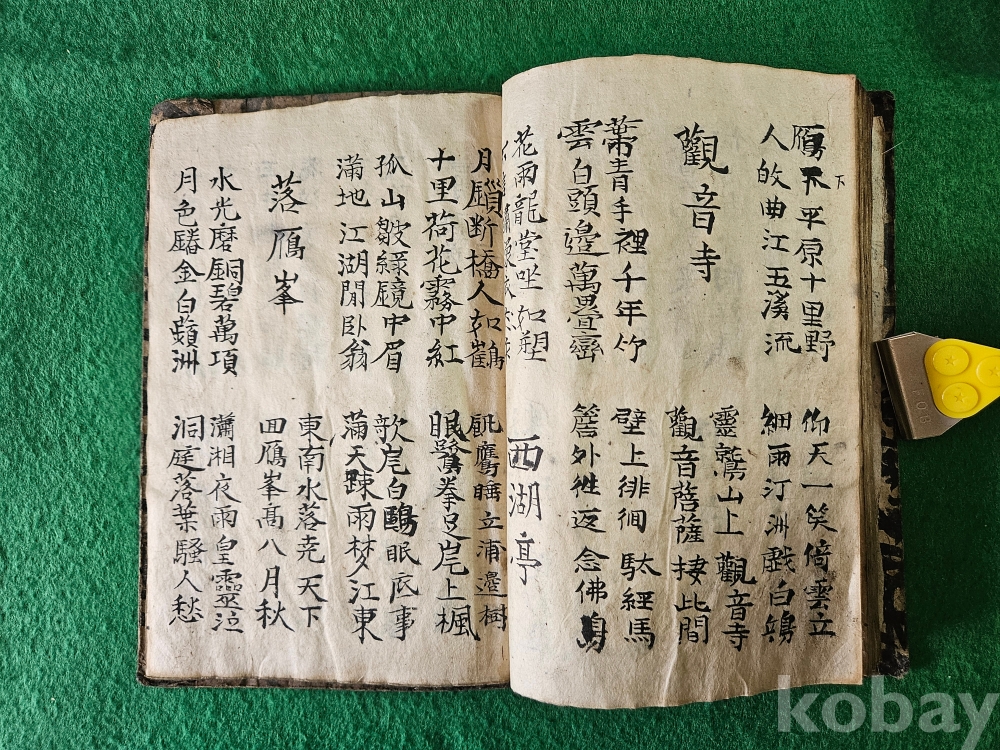 鴈下平原十里野 仰天一笑倚雲立
人攸曲江五溪流 細雨汀洲戱白
觀音寺
靈鷲山上觀音寺
觀音菩薩捿此間
葉靑手裡千年竹 壁上徘徊駄經馬
雲白頭邊萬疊 簷外徃返念佛
花雨龍堂坐如塑
西湖亭
月鎖断橋人如鶴 鷹睡立浦邊樹
十里荷花霧中紅 眠鷺拳足岸上楓
孤山皺綠鏡中眉 欹岸白鷗眠底事
滿地江湖閒卧翁 滿天踈雨梦江東
落鴈峯
東南水落尭天下
回鴈峯髙八月秋
水光磨銅碧萬項 瀟湘夜雨皇靈泣
月色金白蘋洲 洞庭落葉騷人愁
下
kobay